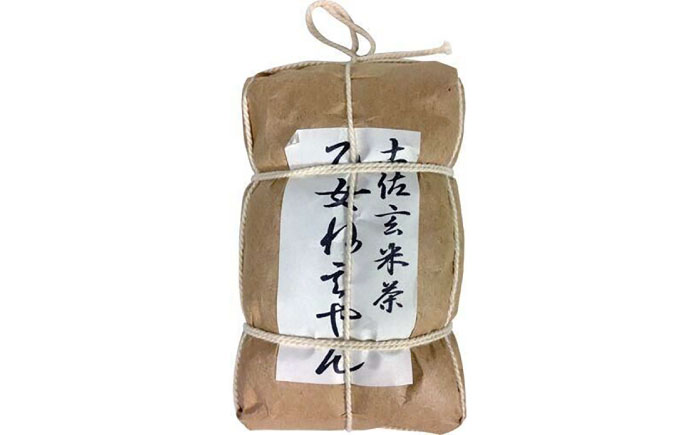 土佐玄米茶
乙女ねえやん